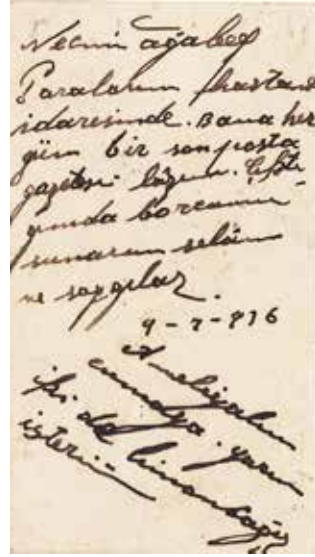 Necmi ağabeğ
Paralarım hastane
idaresinde. Bana her
gün bir son posta
gazetesi lâzım.
borcumu
sunarım selâm
ve saygılar.
9-7-936
Ameliyatım
cumaya. yarın
iki de limon
isterim